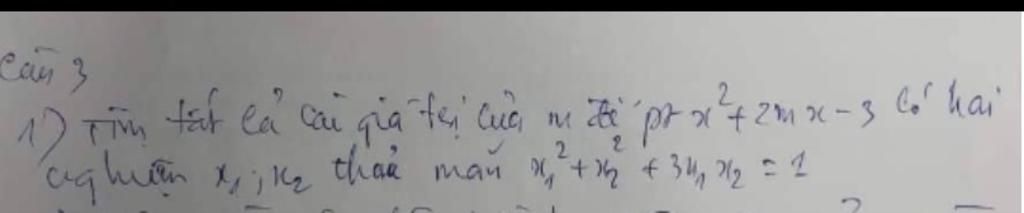 Câu 3
1) Tìm tất cả các giá trị của m để pt x² + 2mx - 3 có hai
nghiệm x₁; x₂ thoả mãn x₁² + x₂² + 3x₁x₂ = 1